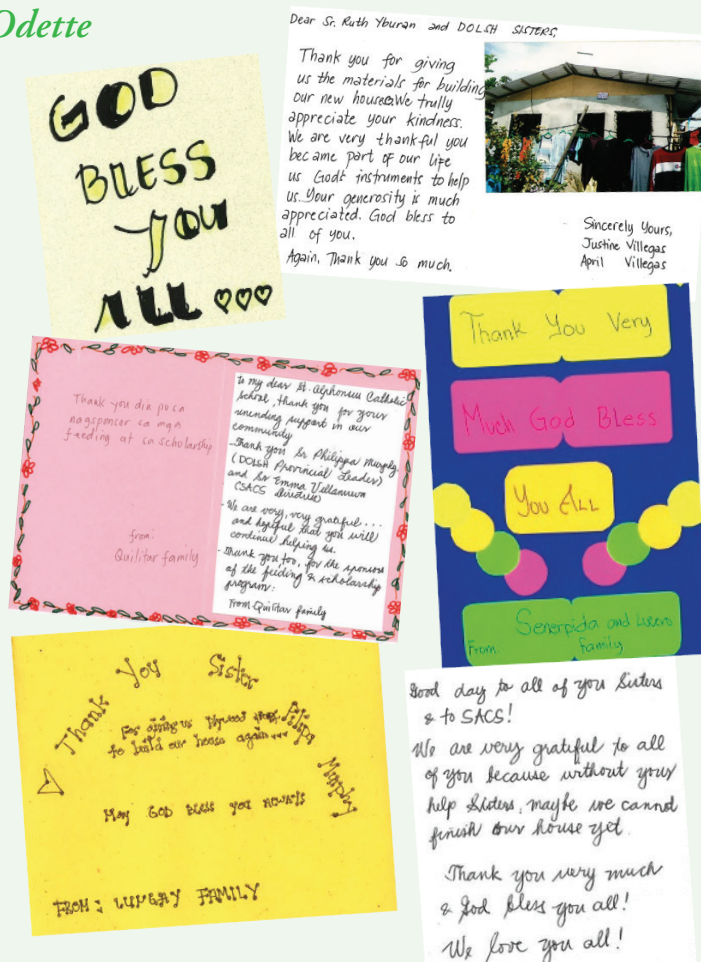 Odette
GOD
BLESS
YOU
ALL
Dear Sr. Ruth Yburan and DOLSH SISTERS,
Thank you for giving
us the materials for building
our new houses. We trully
appreciate your kindness.
We are very thankful you
became part of our life
us God's instruments to help
us. Your generosity is much
appreciated. God bless to
all of you.
Again, Thank you so much.
Sincerely Yours,
Justine Villegas
April Villegas
Thank you din po sa
nagsponsor sa mga
feeding at sa scholarship
from:
Quilitar family
to my dear St. Alphonsus Catholic
School, thank you for your
unending support in our
community
-Thank you Sr Philippa Murphy
(DOLSH Provincial Leader)
and Sr Emma
CSACS
- We are very, very gratiful...
and hopeful that you will
continue helping us.
- thank you too, for the sponsors
of the feeding & scholarship
program:
From Quilitar family
Thank You Very
Much God Bless
You All
From: Senerpida and
Family
Thank You Sister Murphy
For giving us
to build our house again...
May GOD BLESS YOU ALWAYS
FROM: FAMILY
Good day to all of you Sisters
& to SACS!
We are very gratiful to all
of you because without your
help Sisters, maybe we cannot
finish our house yet.
Thank you very much
& God bless you all!
We love you all!